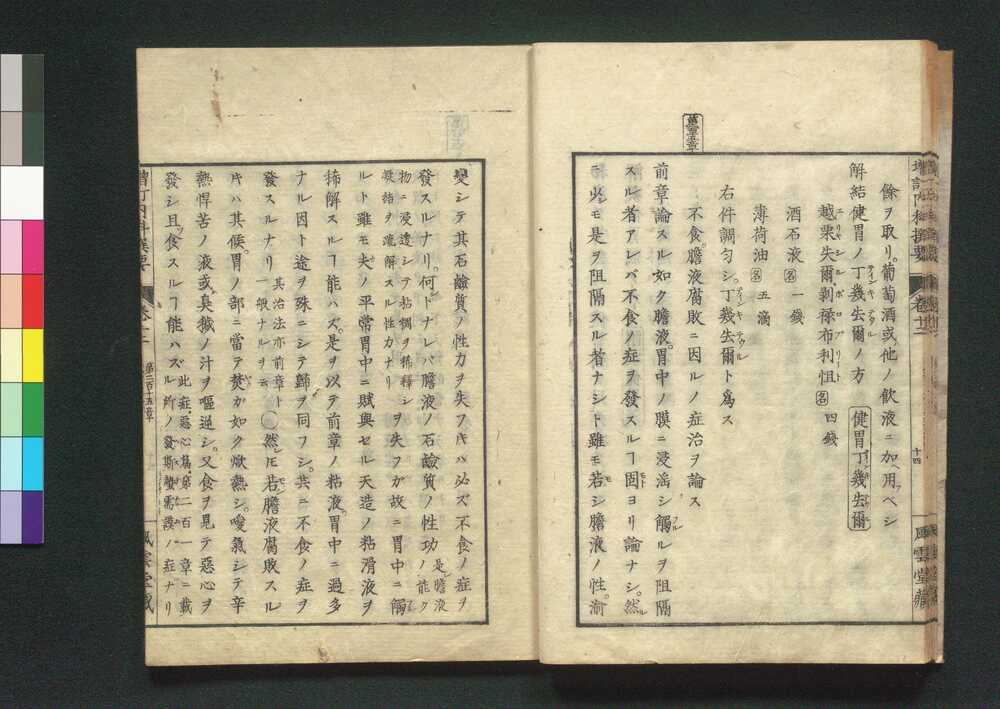 餘ヲ取リ。葡萄酒或ハ他ノ飲液ニ加ヘ用フベシ
解結健胃ノ丁幾去爾ノ方 健胃丁幾去爾
越栗失爾剥禄布利怚 名 四錢
酒石液 名 一錢
薄荷油 名 五滴
右件調匀シ。丁幾去爾ト爲ス
不食。膽液腐敗ニ因ルノ症治ヲ論ス
前章論スル如ク膽液。胃中ノ膜ニ浸淫シ觸ルヽヲ阻隔
スル者アレバ不食ノ症ヲ發スルヿ固ヨリ論ナシ。然
ラ必シモ是ヲ阻隔スル者ナシト雖モ若シ膽液ノ性。渝
增訂內科撰要 卷十二
十四
風雲堂藏
變シテ其石鹼質ノ性力ヲ失フ片ハ必ズ不食ノ症ヲ
發スルナリ。何トナレバ膽液ノ石鹼質ノ性功 是膽液ノ能ク
物ニ浸透シテ粘稠ヲ稀釋シ
凝結ヲ疏解スル性力ナリ ヲ失フガ故ニ胃中ニ觸
ルト雖モ夫ノ平常胃中ニ賦與セル天造ノ粘滑液ヲ
稀解スルヿ能ハズ。是ヲ以テ前章ノ粘液。胃中ニ過多
ナル因ト途ヲ殊ニシテ歸ヲ同フシ。共ニ不食ノ症ヲ
發スルナリ 其治法亦前章ト
一般ナルヲ云 ○然ドモ若膽液腐敗スル
片ハ其候。胃ノ部ニ當テ焚カ如ク焮熱シ。噯氣シテ辛
熱悍苦ノ液或臭穢ノ汁ヲ嘔逆シ。又食ヲ見テ惡心ヲ
發シ且ツ食スルヿ能ハズ 此症惡心篇。第二百一章ニ載
ル所ノ發斯製需護ノ症ナリ
增訂內科撰要 卷十二
第二百十五章
風雲堂藏